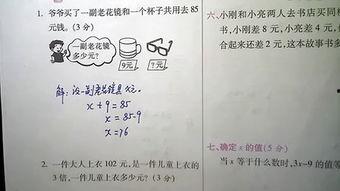 1. 爷爷买了一副老花镜和一个杯子共用去 85
元钱。(3 分)
一副老花镜
多少元?
9元
?元
解:设一副老花镜是 x元.
x+9=85
x=85-9
x=76
2. 一件大人上衣 102 元,是一件儿童上衣的
3 倍,一件儿童上衣多少元?(3 分)
六、小刚和小亮两人去书店买同
书,小刚差 8 元,小亮差 4 元,
合起来还差 2 元,这本故事书多
七、确定 x 的值(5 分)
当 x 等于什么数时,3x-9 的值等